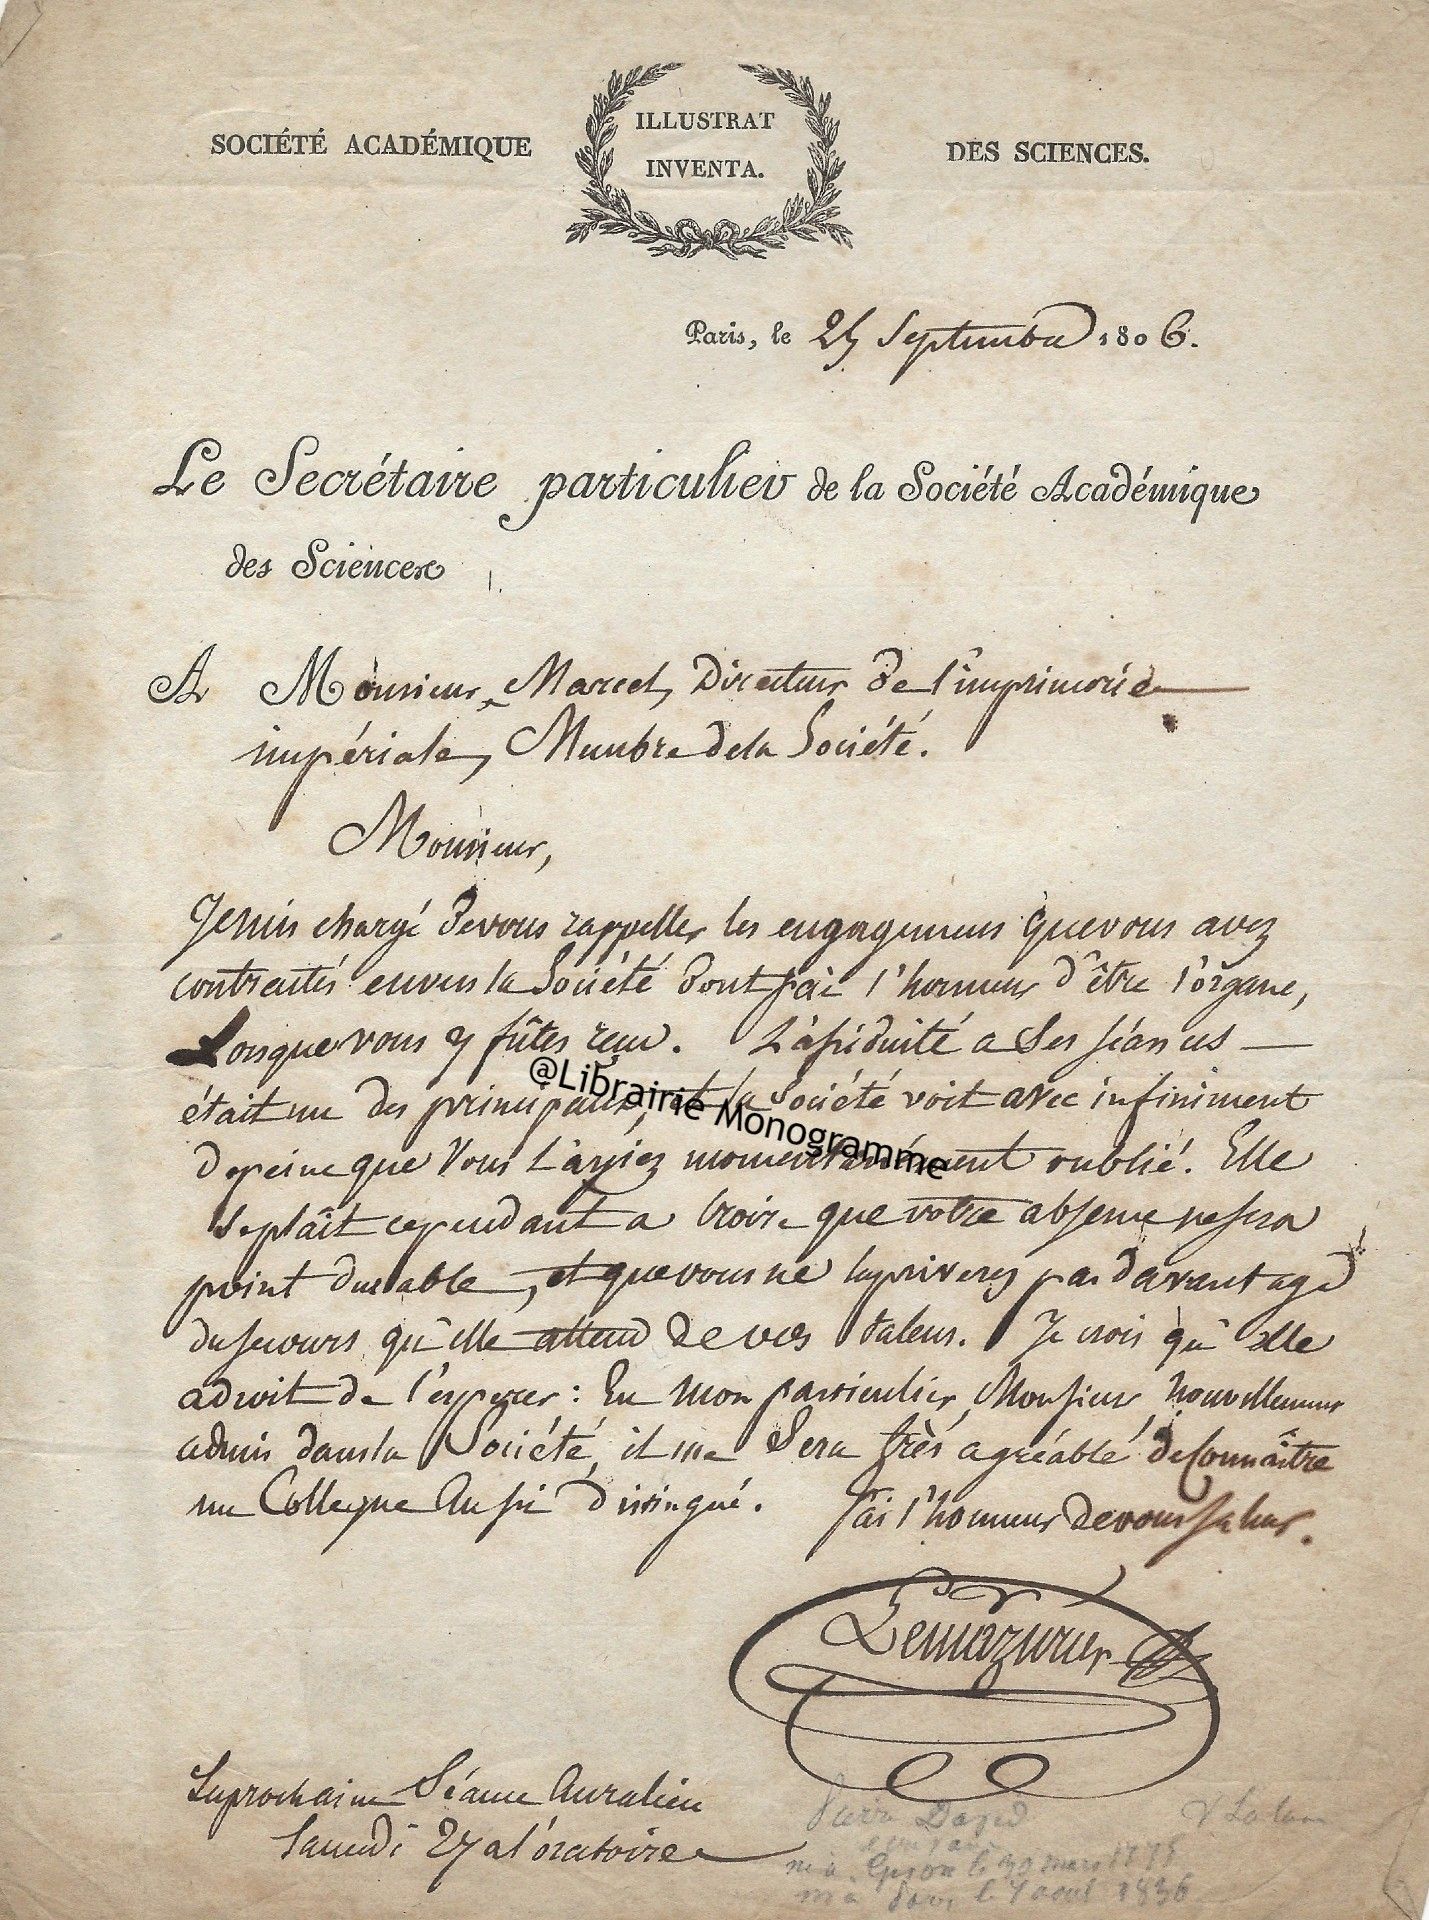 SOCIÉTÉ ACADÉMIQUE ILLUSTRAT INVENTA. DES SCIENCES.
Paris, le 25 Septembre 1806.
Le Secrétaire particulier de la Société Académique
des Sciences
A Monsieur Marcel, Directeur de l'imprimerie
impériale, Membre de la Société.
Monsieur,
Je suis chargé de vous rappeller les engagemens que vous avez
contractés envers la Société dont j'ai l'honneur d'être l'organe,
Lorsque vous y fûtes reçu. L'assiduité a ses séances
était un des principaux, et la Société voit avec infiniment
de peine que vous l'ayiez momentanément oublié. Elle
se plaît cependant a croire que votre absence ne sera
point durable, et que vous ne la priverez pas davantage
du secours qu'elle attend de vos talens. Je crois qu'elle
a droit de l'esperer : En mon particulier, Monsieur, nouvellement
admis dans la Société, il me sera très agréable de Connaître
un Collegue Aussi distingué. J'ai l'honneur de vous saluer.
Lemazurier
La prochaine Séance Aura lieu
Samedi 27 a l'oratoire
@Librairie Monogramme
Pierre David
né à Gisors le 30 mars 1775
le 7 aout 1836